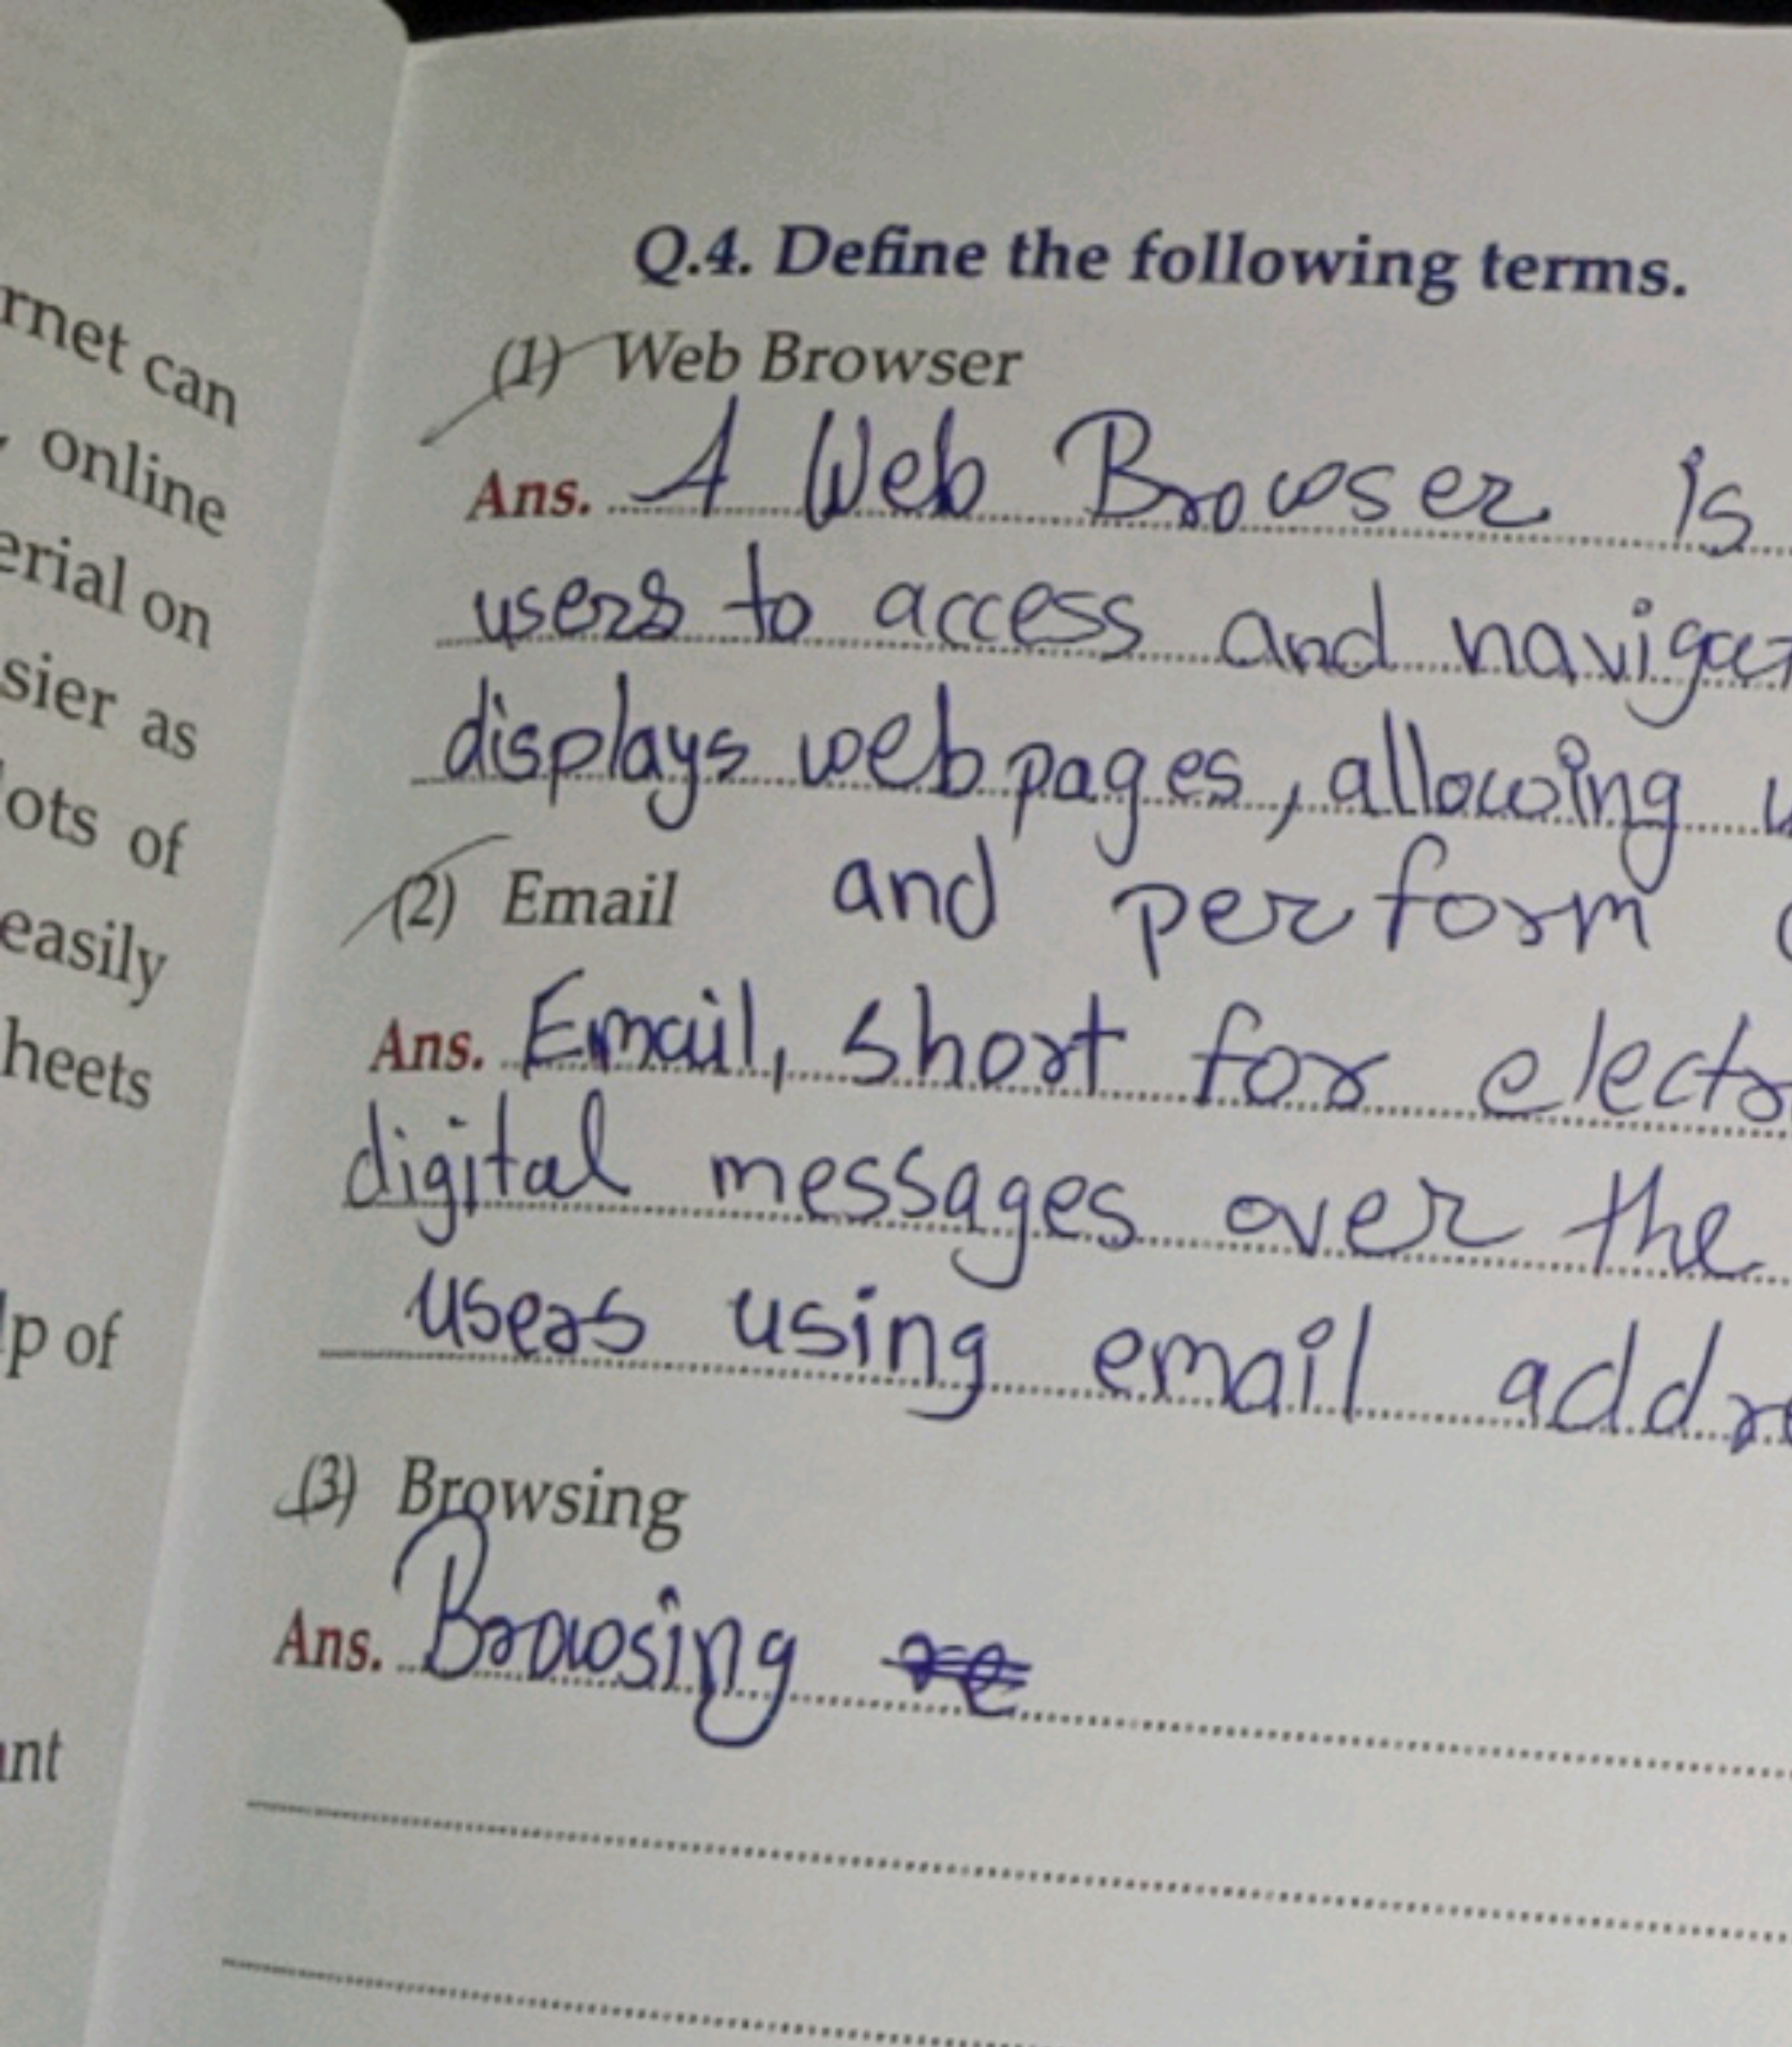 rnet can
, online
erial on
sier as
lots of
easily
heets
lp of
ant
Q.4. Define the following terms.
(1) Web Browser
Ans. A Web Browser is
users to access and navigat
displays webpages, allowing u
(2) Email and perform
Ans. Email, short for electr
digital messages over the
users using email addre
(3) Browsing
Ans. Browsing